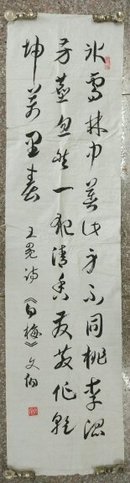 冰雪林中著此身不同桃李混
芳尘忽然一夜清香发散作乾
坤万里春
王冕诗《白梅》文炳